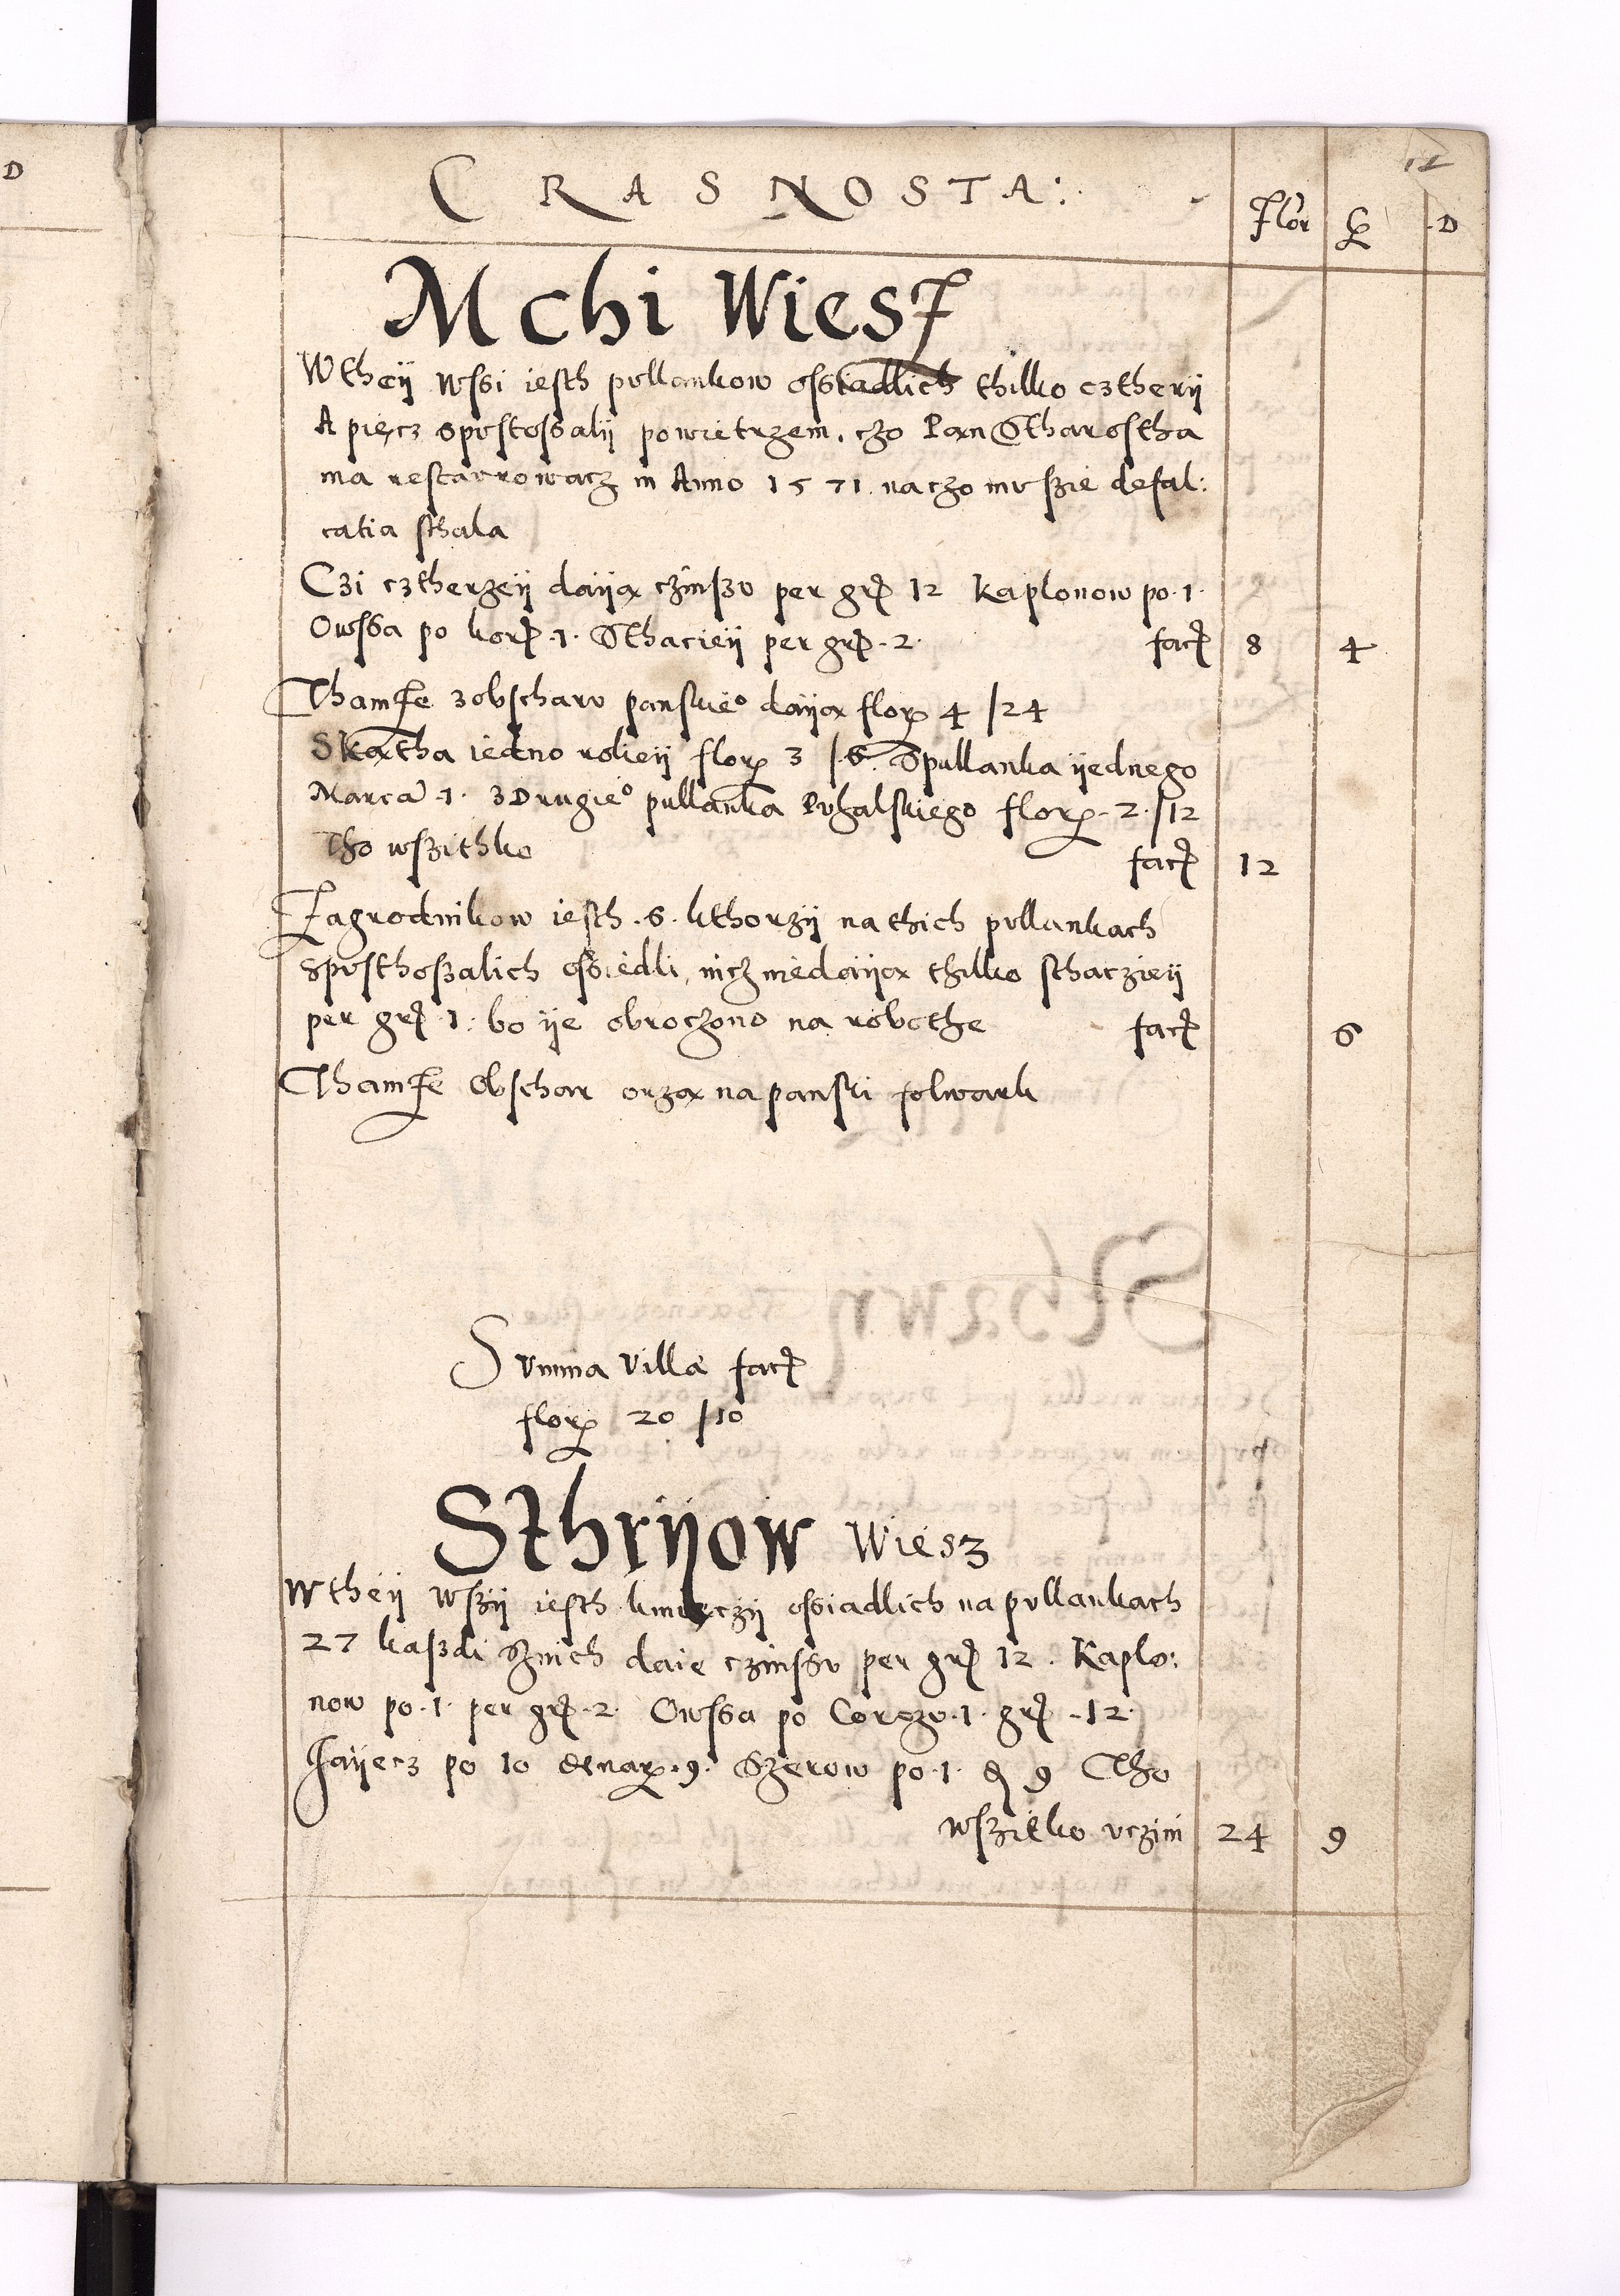 D
12
CRASNOSTA:
Flor G D
Mchi Wiesz
W theÿ wssi iesth pullankow ossiadlich thilko cztherÿ
A pięcz spustossalÿ powietrzem, czo Pan Stharostha
ma restaurowacz in Anno 1571. na czo mu szie defal:
catia sthala
Czi cztherzeÿ daÿą czinszu per grz 12 Kaplonow po .1.
Owssa po korz .1. Sthacieÿ per grz .2. facz 8 4
Thamże z obscharu panskie° daÿą flor 4 /24
S kątha iedno rolieÿ flor 3 /6. S pullanka ÿednego
Marca .1. z Drugie° pullanka Puhalskiego flor. 2 /12
Tho wszithko facz 12
Zagrodnikow iesth .6. kthorzÿ na thich pullankach
spusthoszalich ossiedli, nicz nie daÿą thilko sthaczieÿ
per grz .1. bo ÿe obroczono na robothe facz 6
Thamże Obschar orzą na panski folwark
Summa villae facz
flor 20 /10
Sthrÿow Wiesz
W theÿ wszÿ iesth kmięczÿ ossiadlich na pullankach
27 kaszdi sznich daie czinsszu per grz 12. Kaplo:
now po .1. per grz .2. Owssa po Corczu .1. grz .12.
Jaÿecz po 10 denar. 9. Szerow po .1. d 9 Tho
wszitko uczini 24 9